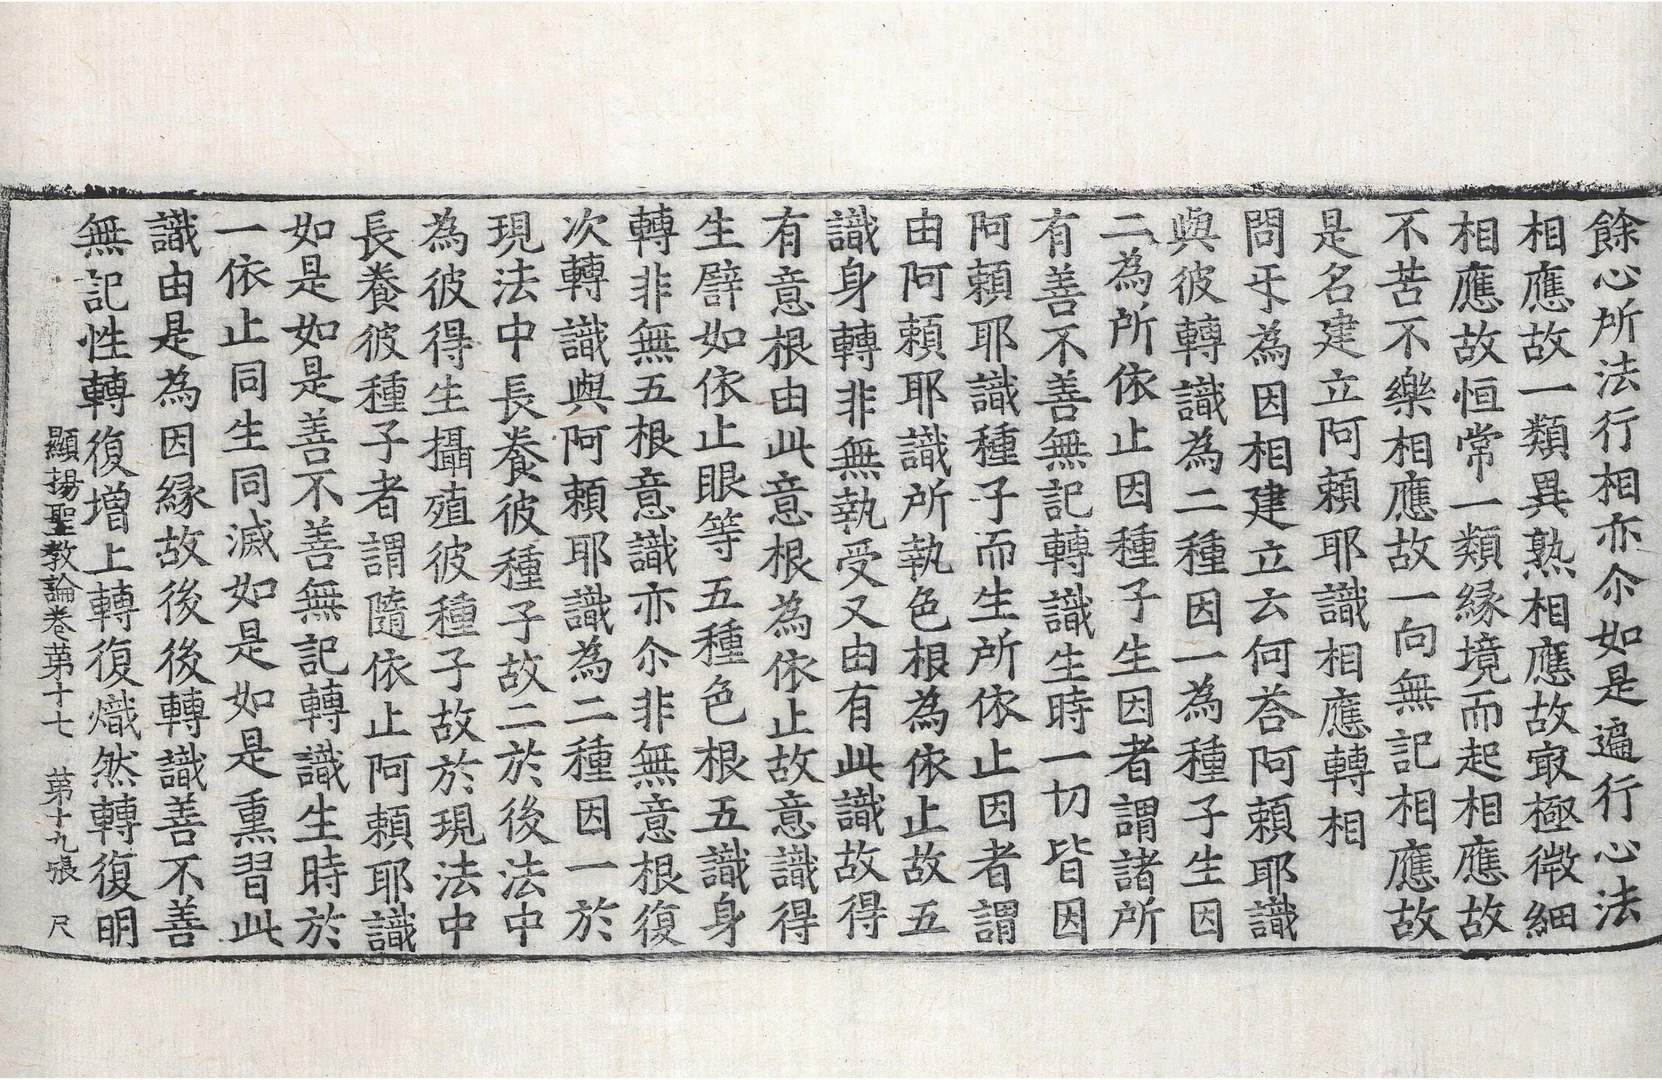 餘心所法行相亦尒如是遍行心法
相應故一類異熟相應故㝡極微細
相應故恒常一類緣境而起相應故
不苦不樂相應故一向無記相應故
是名建立阿頼耶識相應轉相
問㸦為因相建立云何荅阿頼耶識
與彼轉識為二種因一為種子生因
二為所依止因種子生因者謂諸所
有善不善無記轉識生時一切皆因
阿頼耶識種子而生所依止因者謂
由阿頼耶識所執色根為依止故五
識身轉非無執受又由有此識故得
有意根由此意根為依止故意識得
生譬如依止眼等五種色根五識身
轉非無五根意識亦尒非無意根復
次轉識與阿頼耶識為二種因一於
現法中長養彼種子故二於後法中
為彼得生攝殖彼種子故於現法中
長養彼種子者謂隨依止阿頼耶識
如是如是善不善無記轉識生時於
一依止同生同滅如是如是熏習此
識由是為因緣故後後轉識善不善
無記性轉復增上轉復熾然轉復明
顯揚聖教論卷苐十七　苐十九張　尺